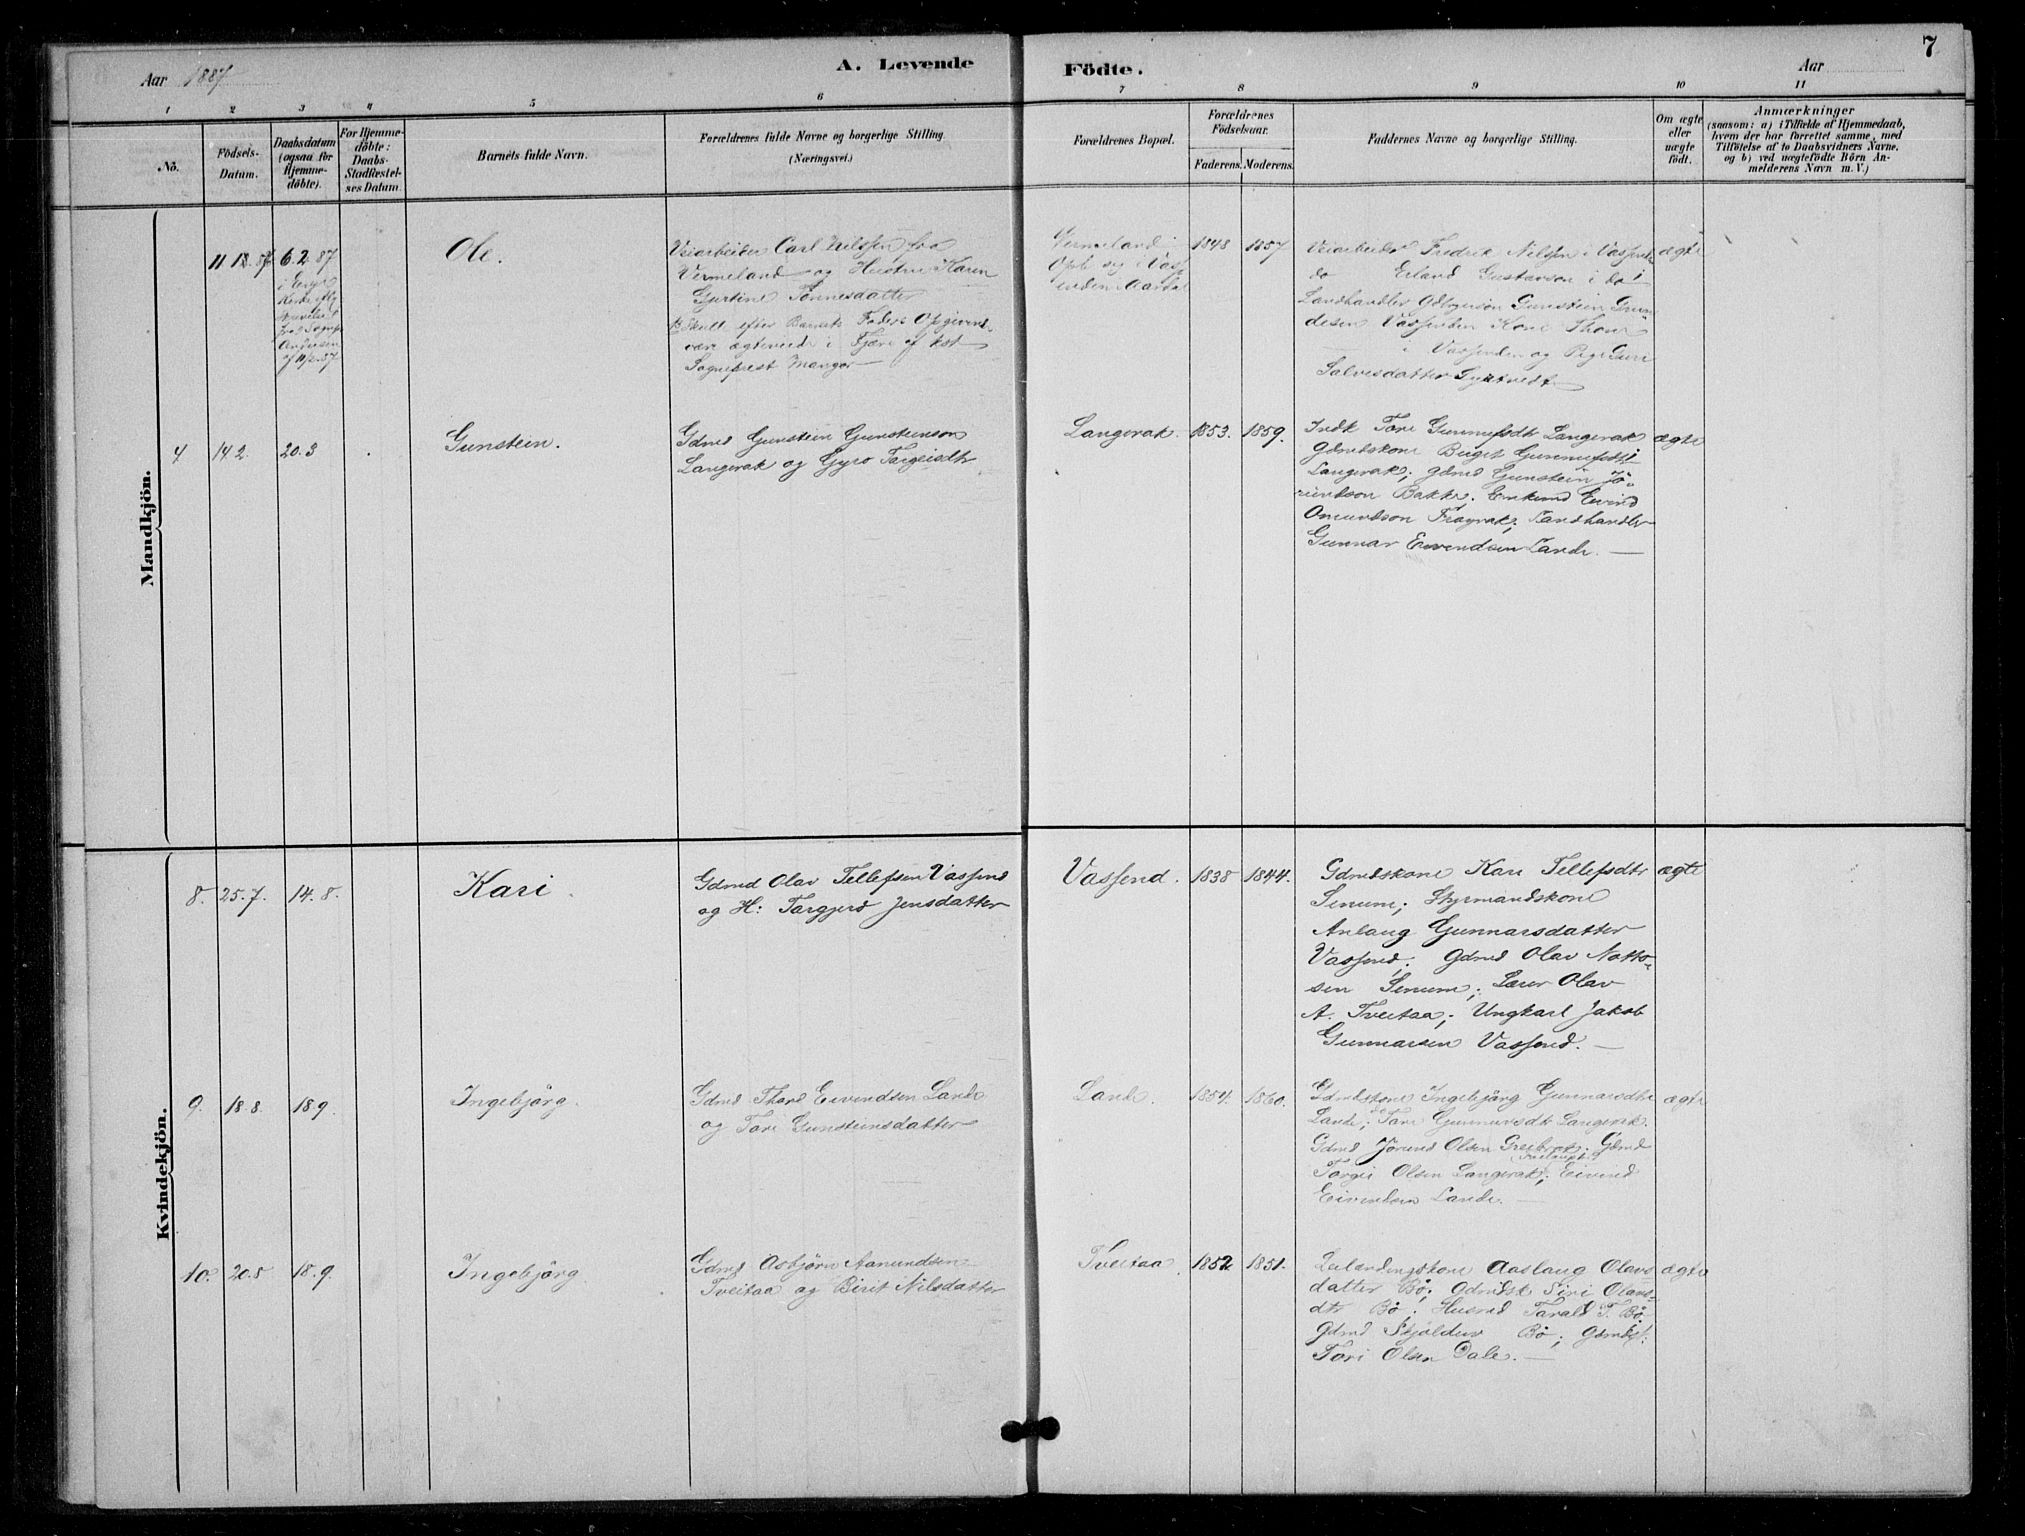 7
Aar 1887
A. Levende
Födte.
Aar
1 2 3 4 5 6 7 8 9 10 11
No.
Födsels-
Datum.
Daabsdatum
(ogsaa for
Hjemme-
döbte).
For Hjemme-
döbte:
Daabs-
Stadfæstel-
ses Datum.
Barnets fulde Navn.
Forældrenes fulde Navne og borgerlige Stilling.
(Næringsvei.)
Forældrenes Bopæl.
Forældrenes
Födselsaar.
Faderens. Moderens.
Faddernes Navne og borgerlige Stilling.
Om ægte
eller
uægte
födt.
Anmærkninger
(saasom: a) i Tilfælde af Hjemmedaab,
hvem der har forrettet samme, med
Tilföielse af to Daabsvidners Navne.
og b) ved uægtefödte Börn An-
melderens Navn m. V.)
Mandkjön.
11 12.87
6.2.87
i
Ole.
Veiarbeider Carl Nilssen fra
Vermeland og Hustru Karen
Gjertine Tønnesdatter
Skull efter Barnets Faders Opgivend
være ægteviede i Fjære af kst
Sogneprest Mangor
Vermeland
1848 1857
Veiarbeider Fredrik Nilsen i Vassend
do Erland Gustavson i do
Landhandler Gunstein
Vassenden Kone Thone
i Vassenden og Pige Guri
Salvesdatter
ægte
4 14 2. 20.3
Gunstein.
Gdmd Gunstein Gunsteinson
Langerak og Gyro Targeisdtr
Langerak. 1853. 1859.
Indk Tore Gunnufsdtr Langerak
Gdmdskone Birget Gunnufsdtr
Langerak; gdmd Gunstein Jö-
rundson Bakke. Enkemd Eivind
Omundson Frøyrak; Landhandler
Gunnar Eivendsen Lande.
ægte
Kvindekjön.
8. 25.7. 14.8.
Kari.
Gdmd Olav Tellefsen Vassend
og H: Targjerd Jensdatter
Vassend. 1838 1844.
Gdmdskone Kari Tellefsdtr
Senum; Styrmandskone
Anlaug Gunnarsdatter
Vassend. Gdmd Olav Notto-
sen Senum; Lærer Olav
A. Tveitaa; Ungkarl Jakob
Gunnarsen Vassend.
ægte
9. 18 8. 18 9.
Ingebjörg.
Gdmd Thord Eivendsen Lande
og Tore Gunsteinsdatter
Lande. 1854. 1860.
Gdmdskone Ingebjörg Gunnarsdtr
Lande; Tore Gunnarsdt Langerak.
Gdmd Jörund Olsen; Gdmd
Torgei Olsen Langerak; Eivind
Eivendsen Lande.
ægte
10. 20.8 18.9.
Ingebjörg
Gdmd Asbjørn Aanundsen
Tveitaa og Birit Nilsdatter
Tveitaa 1852 1851.
Leilændingskone Aaslaug Olavs
datter Bø; Gdmdsk Siri Olavs-
dtr Bø; Husmd Tarald T. Bø.
Gdmd Skjoldulv Bø; Gdmdsf:
Tori Olsen Dale.
ægte